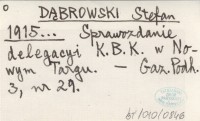 DĄBROWSKI Stefan
1915... Sprawozdanie
delegacyi K.B.K. w No-
wym Targu. — Gaz. Podh.
3, nr 29.
64/040/0846